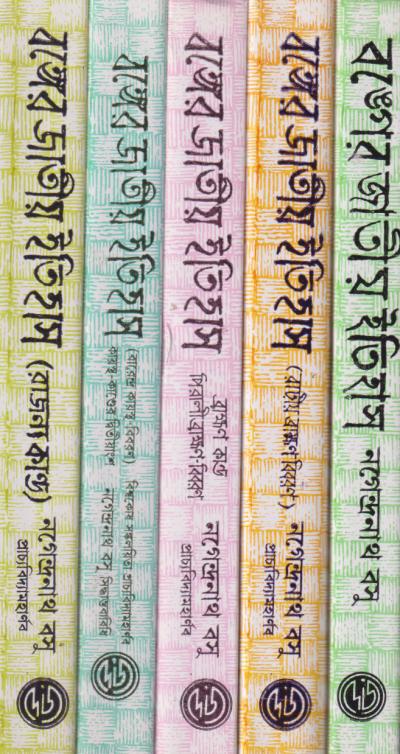 বঙ্গের জাতীয় ইতিহাস নগেন্দ্রনাথ বসু
বঙ্গের জাতীয় ইতিহাস (রাঢ়ীয় ব্রাহ্মণ বিবরণ) নগেন্দ্রনাথ বসু
প্রাচ্যবিদ্যামহার্ণব
বঙ্গের জাতীয় ইতিহাস ব্রাহ্মণ কাণ্ড
পিরালী ব্রাহ্মণ বিবরণ
নগেন্দ্রনাথ বসু
প্রাচ্যবিদ্যামহার্ণব
বঙ্গের জাতীয় ইতিহাস (বারেন্দ্র কায়স্থ-বিবরণ) বিশ্বকোষ সঙ্কলয়িতা প্রাচ্যবিদ্যামহার্ণব
কায়স্থ-কাণ্ডের দ্বিতীয়াংশ নগেন্দ্রনাথ বসু সিদ্ধান্তবারিধি
বঙ্গের জাতীয় ইতিহাস (রাজন্য কাণ্ড) নগেন্দ্রনাথ বসু
প্রাচ্যবিদ্যামহার্ণব